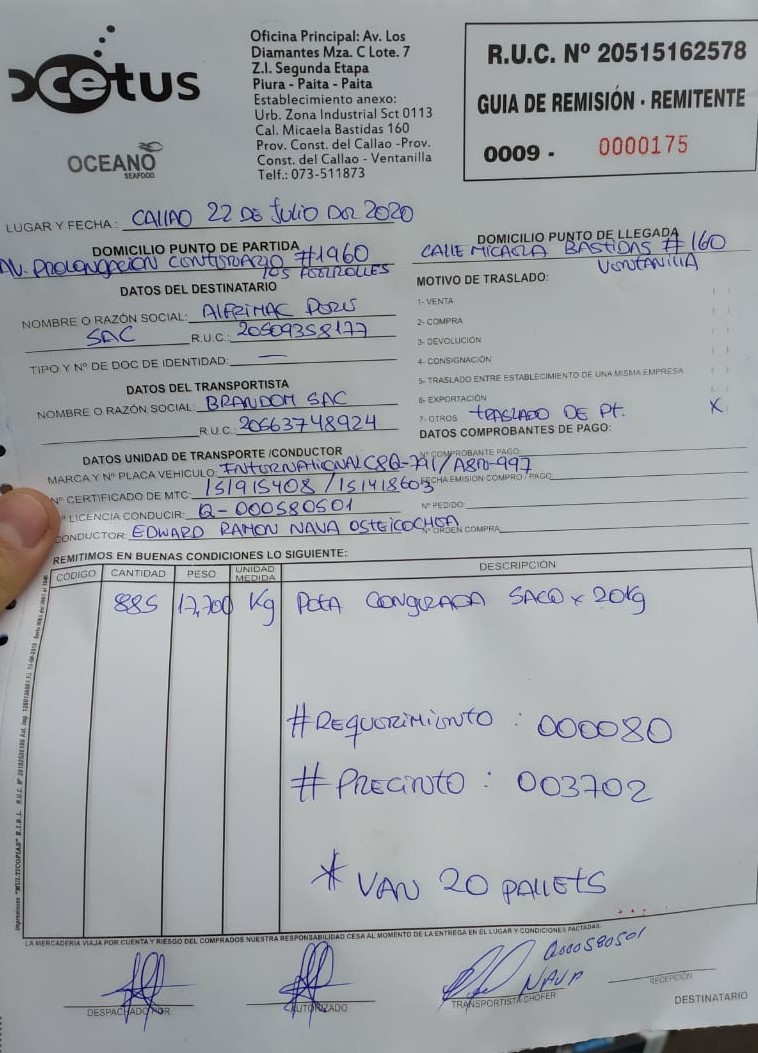 cetus
OCEANO
SEAFOOD
Oficina Principal: Av. Los
Diamantes Mza. C Lote. 7
Z.I. Segunda Etapa
Piura - Paita - Paita
Establecimiento anexo:
Urb. Zona Industrial Sct 0113
Cal. Micaela Bastidas 160
Prov. Const. del Callao -Prov.
Const. del Callao - Ventanilla
Telf.: 073-511873
R.U.C. Nº 20515162578
GUIA DE REMISIÓN - REMITENTE
0009 - 0000175
LUGAR Y FECHA: CALLAO 22 DE Julio DEL 2020
DOMICILIO PUNTO DE PARTIDA
AV. PROLONGACION CENTENARIO #1960
LOS FERROLES
DOMICILIO PUNTO DE LLEGADA
CALLE MICAELA BASTIDAS #160
VENTANILLA
DATOS DEL DESTINATARIO
NOMBRE O RAZÓN SOCIAL: ALFRIMAC PERU
SAC R.U.C.: 20509358177
TIPO Y Nº DE DOC DE IDENTIDAD: —
DATOS DEL TRANSPORTISTA
NOMBRE O RAZÓN SOCIAL: BRANDOM SAC
R.U.C.: 20563748924
MOTIVO DE TRASLADO:
1- VENTA
2- COMPRA
3- DEVOLUCIÓN
4- CONSIGNACIÓN
5- TRASLADO ENTRE ESTABLECIMIENTO DE UNA MISMA EMPRESA
6- EXPORTACIÓN
7- OTROS TRASLADO DE PT. X
DATOS UNIDAD DE TRANSPORTE /CONDUCTOR
MARCA Y Nº PLACA VEHICULO: INTERNATIONAL C8Q-791/A8N-997
Nº CERTIFICADO DE MTC: 151915408 /151418603
Nº LICENCIA CONDUCIR: Q-000580501
CONDUCTOR: EDWARD RAMON NAVA OSTEICOCHEA
DATOS COMPROBANTES DE PAGO:
Nº COMPROBANTE PAGO:
FECHA EMISIÓN COMP./PAGO:
Nº PEDIDO:
Nº ORDEN COMPRA:
REMITIMOS EN BUENAS CONDICIONES LO SIGUIENTE:
CÓDIGO CANTIDAD PESO UNIDAD MEDIDA DESCRIPCIÓN
885 17,700 Kg POTA CONGELADA SACO x 20Kg
#REQUERIMIENTO : 000080
# PRECINTO : 003702
* VAN 20 PALLETS
LA MERCADERIA VIAJA POR CUENTA Y RIESGO DEL COMPRADOS NUESTRA RESPONSABILIDAD CESA AL MOMENTO DE LA ENTREGA EN EL LUGAR Y CONDICIONES PACTADAS.
Q000580501
NAVA
DESPACHADO POR
AUTORIZADO
TRANSPORTISTA CHOFER
RECEPCIÓN
DESTINATARIO